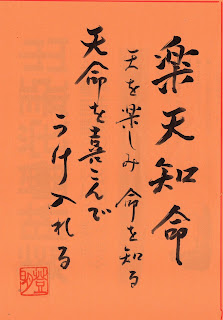 楽天知命
天を楽しみ命を知る
天命を喜こんで
うけ入れる